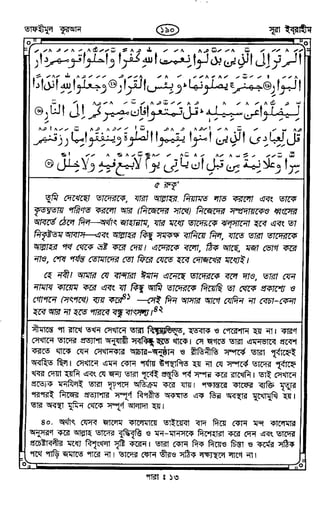 তাফহীমুল কুরআন
১৯০
সূরা ইবরাহীম
اَلَمْ تَرَ اِلَى الَّذِيْنَ بَدَّلُوْا نِعْمَتَ اللهِ كُفْرًا وَّاَحَلُّوْا قَوْمَهُمْ دَارَ
الْبَوَارِ جَهَنَّمَ يَصْلَوْنَهَا وَبِئْسَ الْقَرَارُ وَجَعَلُوْا لِلّٰهِ اَنْدَادًا
لِّيُضِلُّوْا عَنْ سَبِيْلِهٖ قُلْ تَمَتَّعُوْا فَاِنَّ مَصِيْرَكُمْ اِلَى النَّارِ
قُلْ لِّعِبَادِىَ الَّذِيْنَ اٰمَنُوْا يُقِيْمُوا الصَّلٰوةَ وَيُنْفِقُوْا مِمَّا رَزَقْنٰهُمْ
سِرًّا وَّعَلَانِيَةً مِّنْ قَبْلِ اَنْ يَّاْتِىَ يَوْمٌ لَّا بَيْعٌ فِيْهِ وَلَا خِلٰلٌ
৫ রুকূ'
তুমি দেখেছো তাদেরকে, যারা আল্লাহর নিয়ামত লাভ করলো এবং তাকে
কৃতঘ্নতায় পরিণত করলো আর (নিজেদের সাথে) নিজেদের সম্প্রদায়কেও ধ্বংসের
আবর্তে ঠেলে দিল—অর্থাৎ জাহান্নাম, যার মধ্যে তাদেরকে ঝল্‌সানো হবে এবং তা
নিকৃষ্টতম আবাস—এবং আল্লাহর কিছু সমকক্ষ বানিয়ে নিল, যাতে তারা তাদেরকে
আল্লাহর পথ থেকে ভ্রষ্ট করে দেয়। এদেরকে বলো, ঠিক আছে, মজা ভোগ করে
নাও, শেষ পর্যন্ত তোমাদের তো ফিরে যেতে হবে দোজখের মধ্যেই।
হে নবী! আমার যে বান্দারা ঈমান এনেছে তাদেরকে বলে দাও, তারা যেন
নামায কায়েম করে এবং যা কিছু আমি তাদেরকে দিয়েছি তা থেকে প্রকাশ্যে ও
গোপনে (সৎপথে) ব্যয় করে৪১—সেই দিন আসার আগে যেদিন না বেচা-কেনা
হবে আর না হতে পারবে বন্ধু বাৎসল্য।৪২
সীমান্তে পা রাখে তখন সেখানে তারা হতবাক ও পেরেশান হয় না। কারণ
সেখানে তাদের প্রত্যাশা অনুযায়ী সবকিছু হতে থাকে। সে জগতে তারা এমনভাবে প্রবেশ
করতে থাকে যেন সেখানকার আচার-অনুষ্ঠান ও রীতিনীতি সম্পর্কে তারা পূর্বাহ্নেই
অবহিত ছিল। সেখানে এমন কোন পর্যায় উপস্থিত হয় না যে সম্পর্কে তাদের পূর্বাহ্নে
খবর দেয়া হয়নি এবং যে জন্য তারা পূর্বেই প্রস্তুতি পর্ব সম্পন্ন করে রাখেনি। তাই সেখানে
প্রত্যেক মনযিলই তারা দৃঢ়পদে অতিক্রম করে যায়। পক্ষান্তরে কাফের ব্যক্তি মৃত্যুর
পরপরই নিজের প্রত্যাশার সম্পূর্ণ বিপরীত অকস্মাত এক ভিন্ন অবস্থার মুখোমুখি হয়।
তার অবস্থা মুমিন থেকে সম্পূর্ণ আলাদা হয়।
৪০. অর্থাৎ যেসব জালেম কালেমায়ে তাইয়েবা বাদ দিয়ে কোন মন্দ কালেমার
অনুসরণ করে আল্লাহ তাদের বুদ্ধিবৃত্তি ও মন-মানসকে দিশেহারা করে দেন এবং তাদের
প্রচেষ্টাবলীর মধ্যে বিশৃংখলা সৃষ্টি করেন। তারা কোন দিক দিয়েও চিন্তা ও কর্মের সঠিক
পথে পাড়ি জমাতে পারে না। তাদের কোন তীরও সঠিক লক্ষ্যস্থলে লাগে না।
পারা : ১৩